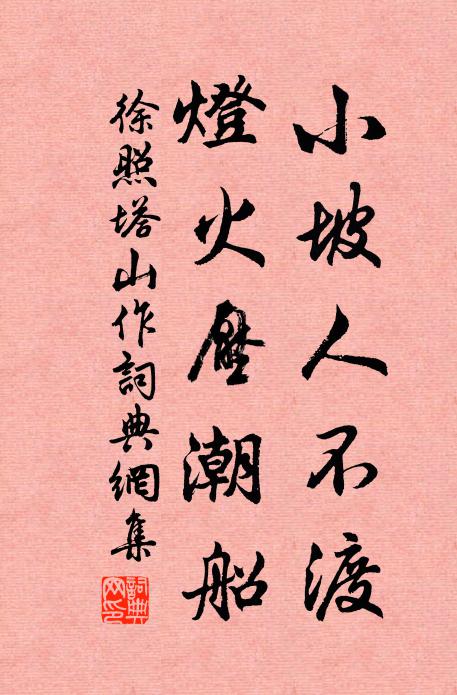 小坡人不渡
燈火壓潮船
徐照塔山作詞典網集
詞典網印